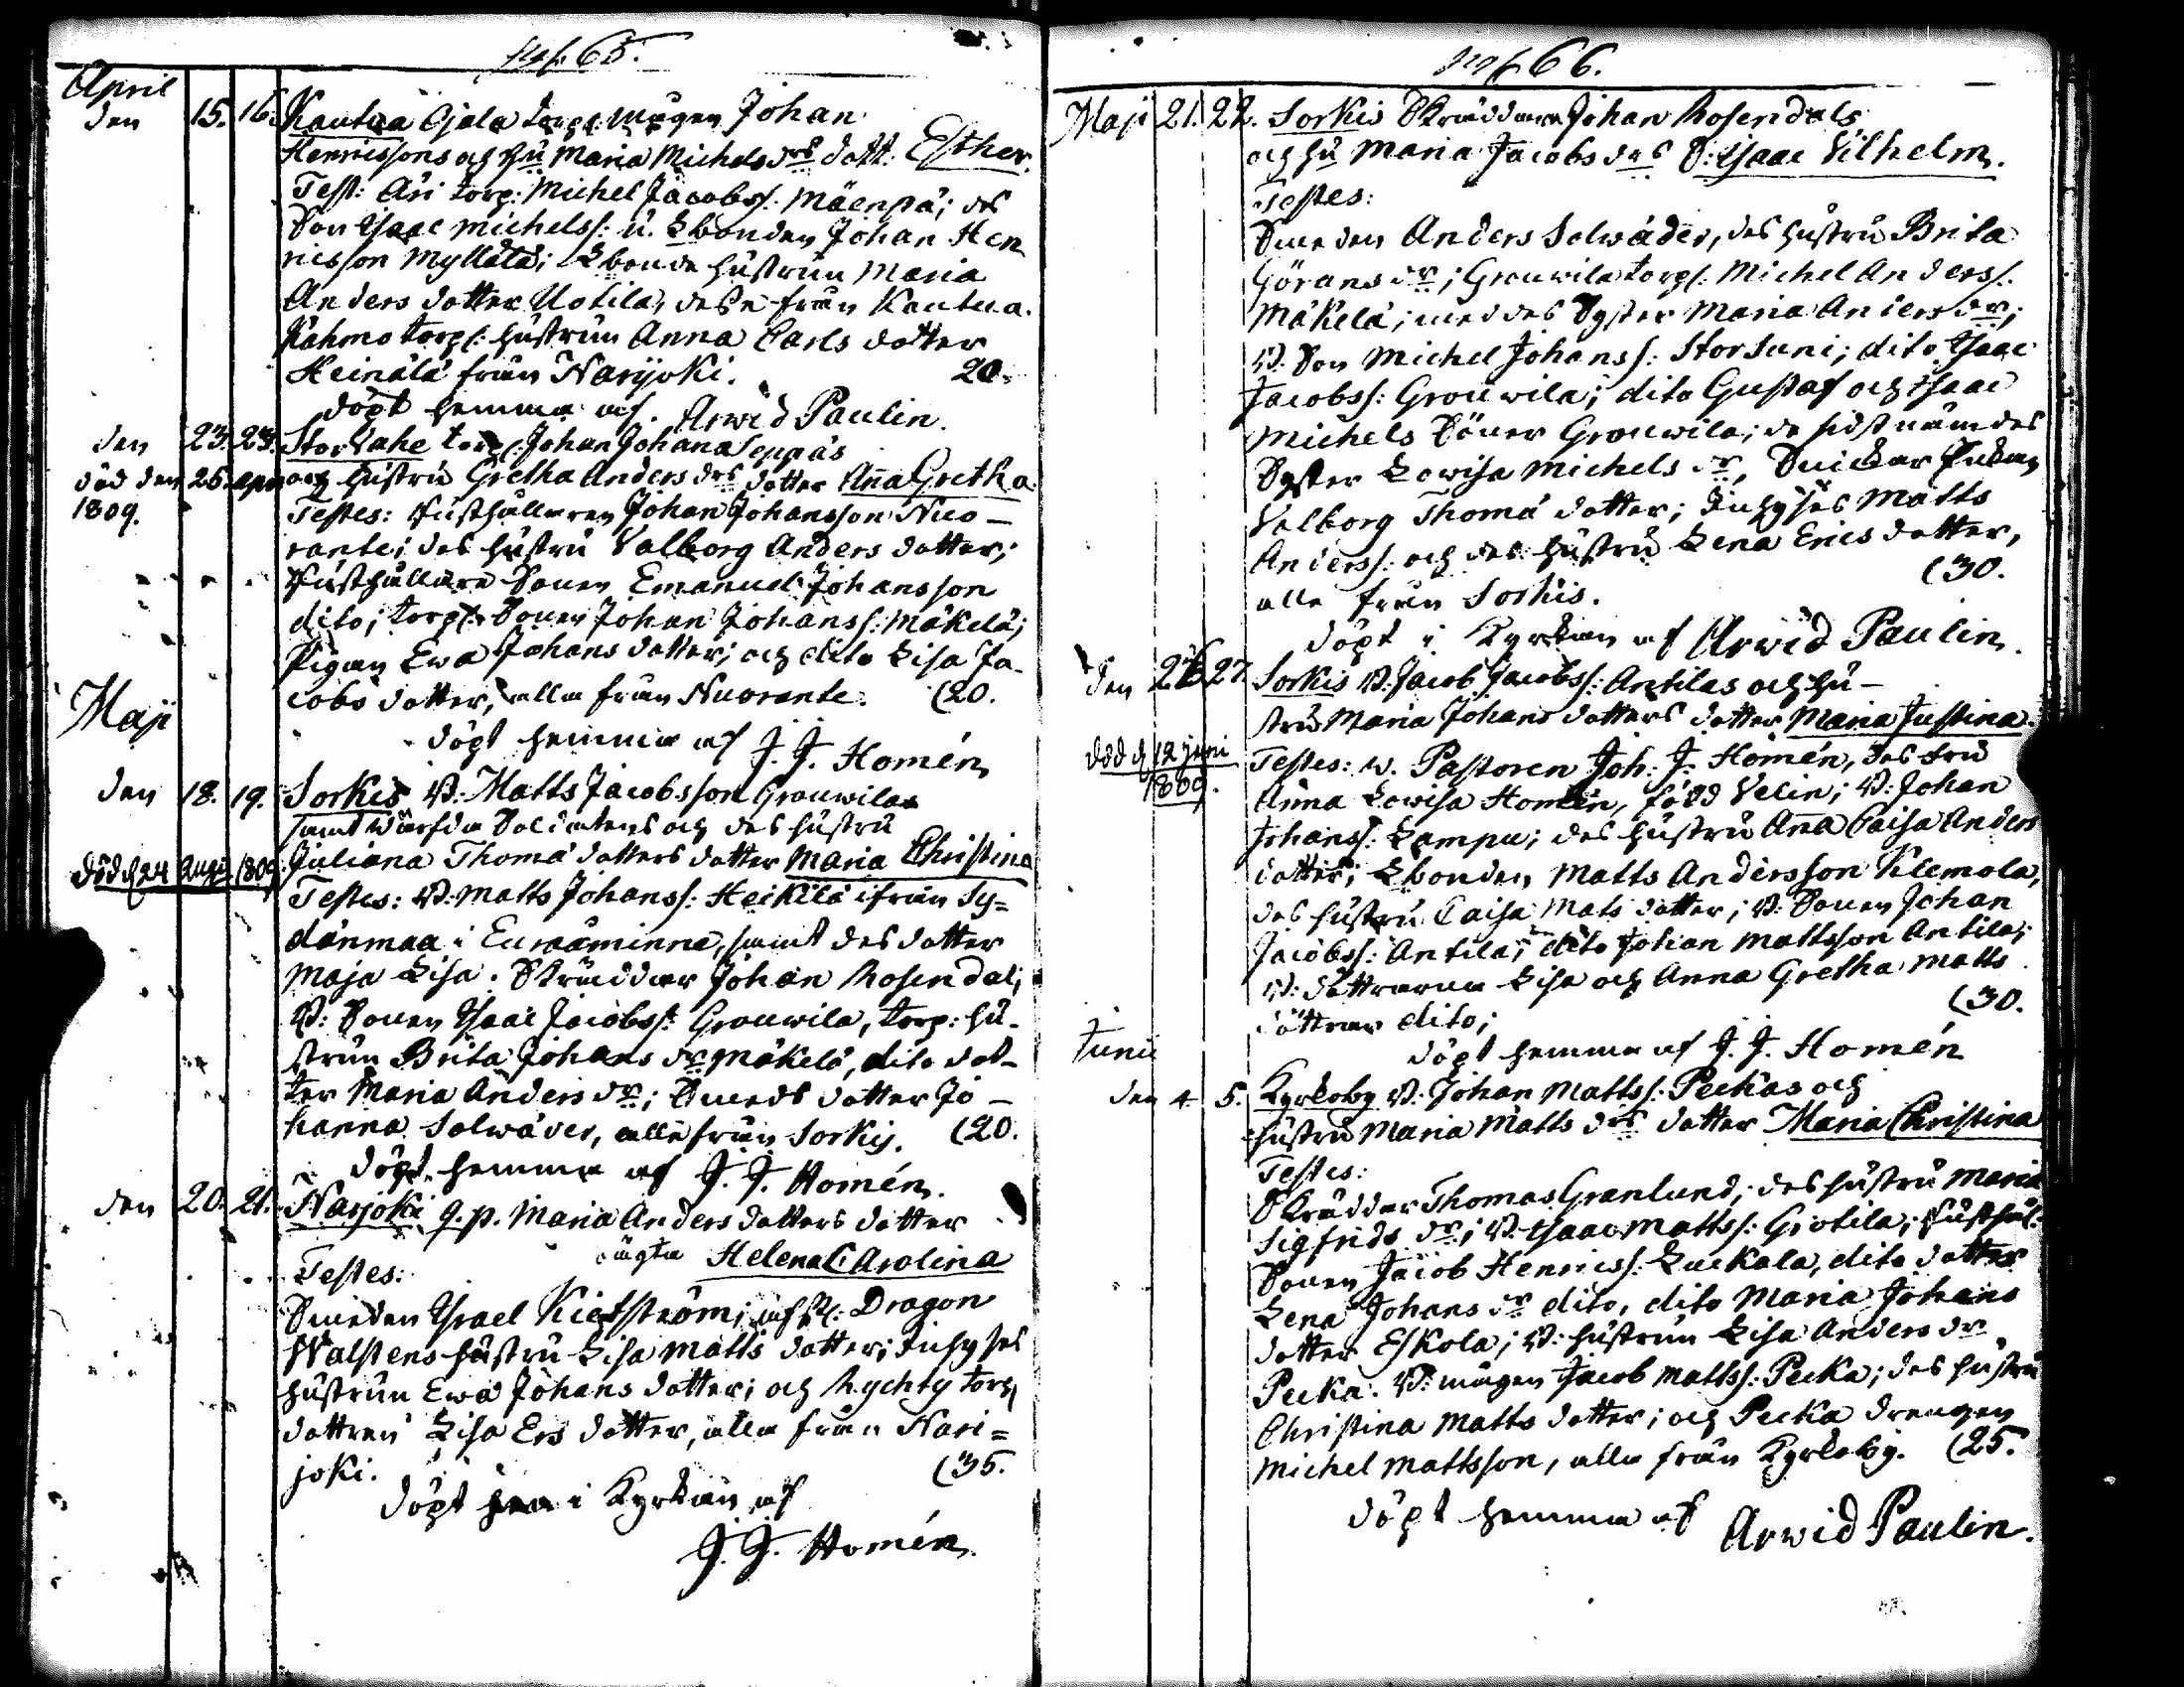 65.
April
den 15. 16. Kautua Ojala torp: mågen Johan
Henricssons och hu Maria Michelsdrs dott: Esther.
Test: Äri torp: Michel Jacobss: Mäenpä; des
Son Isaac Michelss: Lbonden Johan Hen
ricsson Myllätä; Lbonde hustrun Maria
Anders dotter Uotila, desse från Kautua.
torp: hustrun Anna Carls dotter
Heinälä från Narjoki. 20.
döpt hemma af Arwid Paulin.
den 23. 23. Storlahe torp: Johan Johans Seppäs
död den 26. apr. och hustru Gretha Anders drs dotter Anna Gretha
1809. Testes: Rusthållaren Johan Johansson Nuo-
rante; des hustru Valborg Anders dotter;
Rusthållare Sonen Emanuel Johansson
dito; torp: Sonen Johan Johanss: Mäkelä;
Pigan Ewa Johans dotter; och dito Lisa Ja-
cobs dotter, alla från Nuorante. (20.
Maji
döpt hemma af J. J. Homén
den 18. 19. Sorkis B: Matts Jacobsson Grouwilas
samt Soldatens och des hustru
död d 24 Aug. 1809. Juliana Thomä dotters dotter Maria Christina
Testes: B: Matts Johanss: Heikilä ifrån Sy=
dänmaa i Euraåminne, samt des dotter
Maja Lisa. Skräddar Johan Rosendal;
B: Sonen Isaac Jacobss: Grouwila, torp: hu-
strun Brita Johans dr Mäkelä, dito dot-
ter Maria Anders dr; Smeds dotter Jo-
hanna Solwäder, alla från Sorkis. (20.
döpt hemma af J. J. Homén.
den 20. 21. Narjoki q. p. Maria Anders dotters dotter
oägta Helena Carolina
Testes:
Smeden Israel afsk: Dragon
Walstens hustru Lisa Matts dotter; Inhyses
hustrun Ewa Johans dotter; och Rychty torp
dottren Lisa Ers dotter, alla från Nari=
joki. (35.
döpt i Kyrkan af
J. J. Homén.
66.
Maji 21. 22. Sorkis Skräddaren Johan Rosendals
och hu Maria Jacobs drs S: Isaac Vilhelm.
Testes:
Smeden Anders Solwäder, des hustru Brita
Görans dr; Grouwila torp: Michel Anderss:
Mäkelä; med des Syster Maria Anders dr;
B: Son Michel Johanss: Storsuni; dito Isaac
Jacobss: Grouwila; dito Gustaf och Isaac
Michels Söner Grouwila; de sidstnämdes
Syster Lowisa Michels dr, Snickar Enkan
Valborg Thomä dotter; Inhyses Matts
Anderss: och des hustru Lena Erics dotter,
alla från Sorkis. (30.
döpt i Kyrkan af Arwid Paulin.
den 26 27. Sorkis B: Jacob Jacobss: Antilas och hu-
stru Maria Johans dotters dotter Maria Justina.
död d 12 juni Testes: w. Pastoren Joh: J: Homén, des fru
1809. Anna Lowisa Homén, född Velin; B: Johan
Johanss: Lampu; des hustru Anna Caisa Anders
dotter; Lbonden Matts Andersson Klemola,
des hustru Caisa Mats dotter; B: Sonen Johan
Jacobss: Antila; dito Johan Mattsson Antila;
B: döttrarna Lisa och Anna Gretha Matts
döttrar dito; (30.
Junii döpt hemma af J. J. Homén
den 4. 5. Kyrkoby B: Johan Mattss: Peckas och
hustru Maria Matts drs dotter Maria Christina
Testes:
Skräddar Thomas Granlund; des hustru Maria
Sigfrids dr; B: Isaac Mattss: Giotila; Rusthål:
Sonen Jacob Henricss: Luckala, dito dotter
Lena Johans dr dito, dito Maria Johans
dotter Eskola; B: hustrun Lisa Anders dr
Pecka. B: mågen Jacob Mattss: Pecka; des hustru
Christina Matts dotter; och Pecka drengen
Michel Mattsson, alla från Kyrkoby. (25.
döpt hemma af Arwid Paulin.